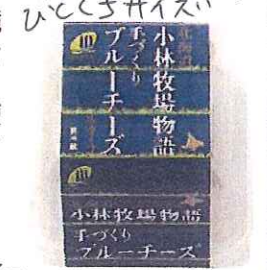 ひとくちサイズ!!
北海道
小林牧場物語
手づくり
ブルーチーズ
小林牧場物語
手づくり
ブルーチーズ